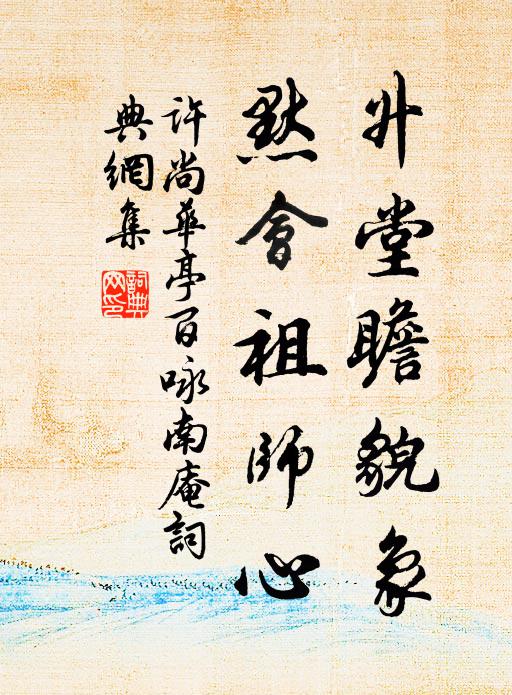 升堂瞻貌象
默會祖師心
許尚華亭百咏南庵詞
典網集
詞典
网印